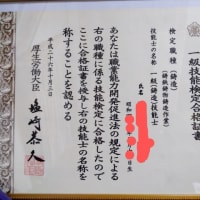 一級技能検定合格証書
検定職種 (鋳造)
(鋳鉄鋳物鋳造作業)
技能士の名称 一級(鋳造)技能士
氏名
昭和 日生
あなたは職業能力開発促進法の規定による
右の職種に係る技能検定に合格したので
ここに合格証書を授与し右の技能士の名称を
称することを認める
平成二十六年十月三日
厚生労働大臣
塩崎恭久